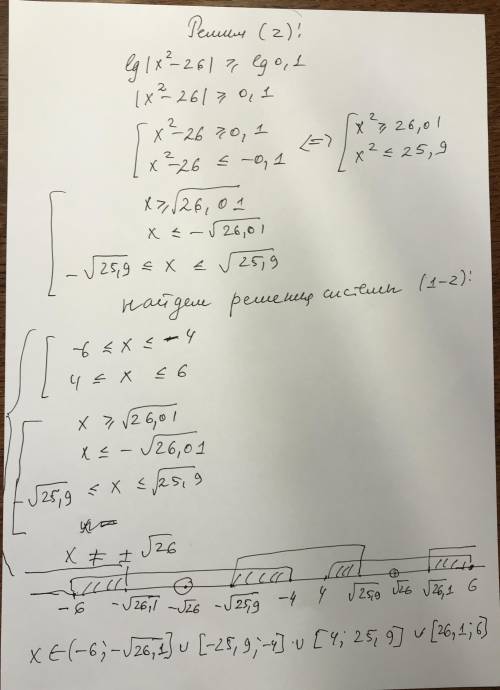 Решим (2):
lg|x²-26| ≥ lg0,1
|x²-26| ≥ 0,1
[ x²-26 ≥ 0,1 <=> [ x² ≥ 26,01
x²-26 ≤ -0,1 x² ≤ 25,9
x ≥ √26,01
x ≤ -√26,01
-√25,9 ≤ x ≤ √25,9
Найдем решения системы (1-2):
-6 ≤ x ≤ -4
4 ≤ x ≤ 6
x ≥ √26,01
x ≤ -√26,01
-√25,9 ≤ x ≤ √25,9
x ≠ ±√26
-6 -√26,1 -√26 -√25,9 -4 4 √25,9 √26 √26,1 6
x ∈ (-6; -√26,1] ∪ [-25,9; -4] ∪ [4; 25,9] ∪ [26,1; 6)